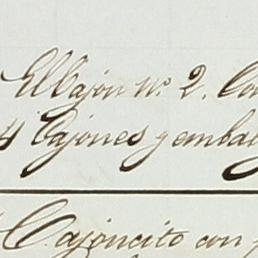 El Cajon nº 2. Ca
4 Cajones y embal
Cajoncito con